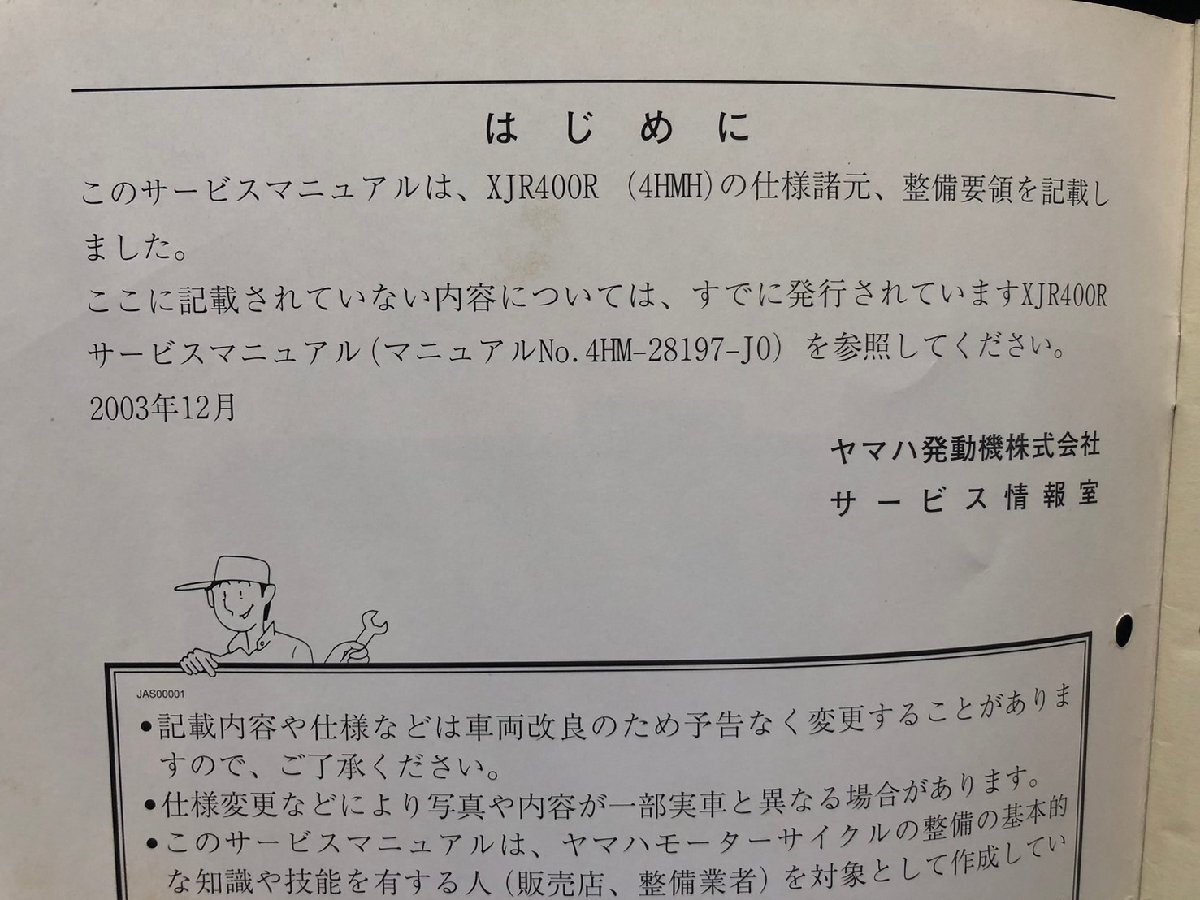 はじめに
このサービスマニュアルは、XJR400R (4HMH)の仕様諸元、整備要領を記載し
ました。
ここに記載されていない内容については、すでに発行されていますXJR400R
サービスマニュアル(マニュアルNo.4HM-28197-J0) を参照してください。
2003年12月
ヤマハ発動機株式会社
サービス情報室
JAS00001
•記載内容や仕様などは車両改良のため予告なく変更することがありま
すので、ご了承ください。
•仕様変更などにより写真や内容が一部実車と異なる場合があります。
•このサービスマニュアルは、ヤマハモーターサイクルの整備の基本的
な知識や技能を有する人(販売店、整備業者)を対象として作成してい